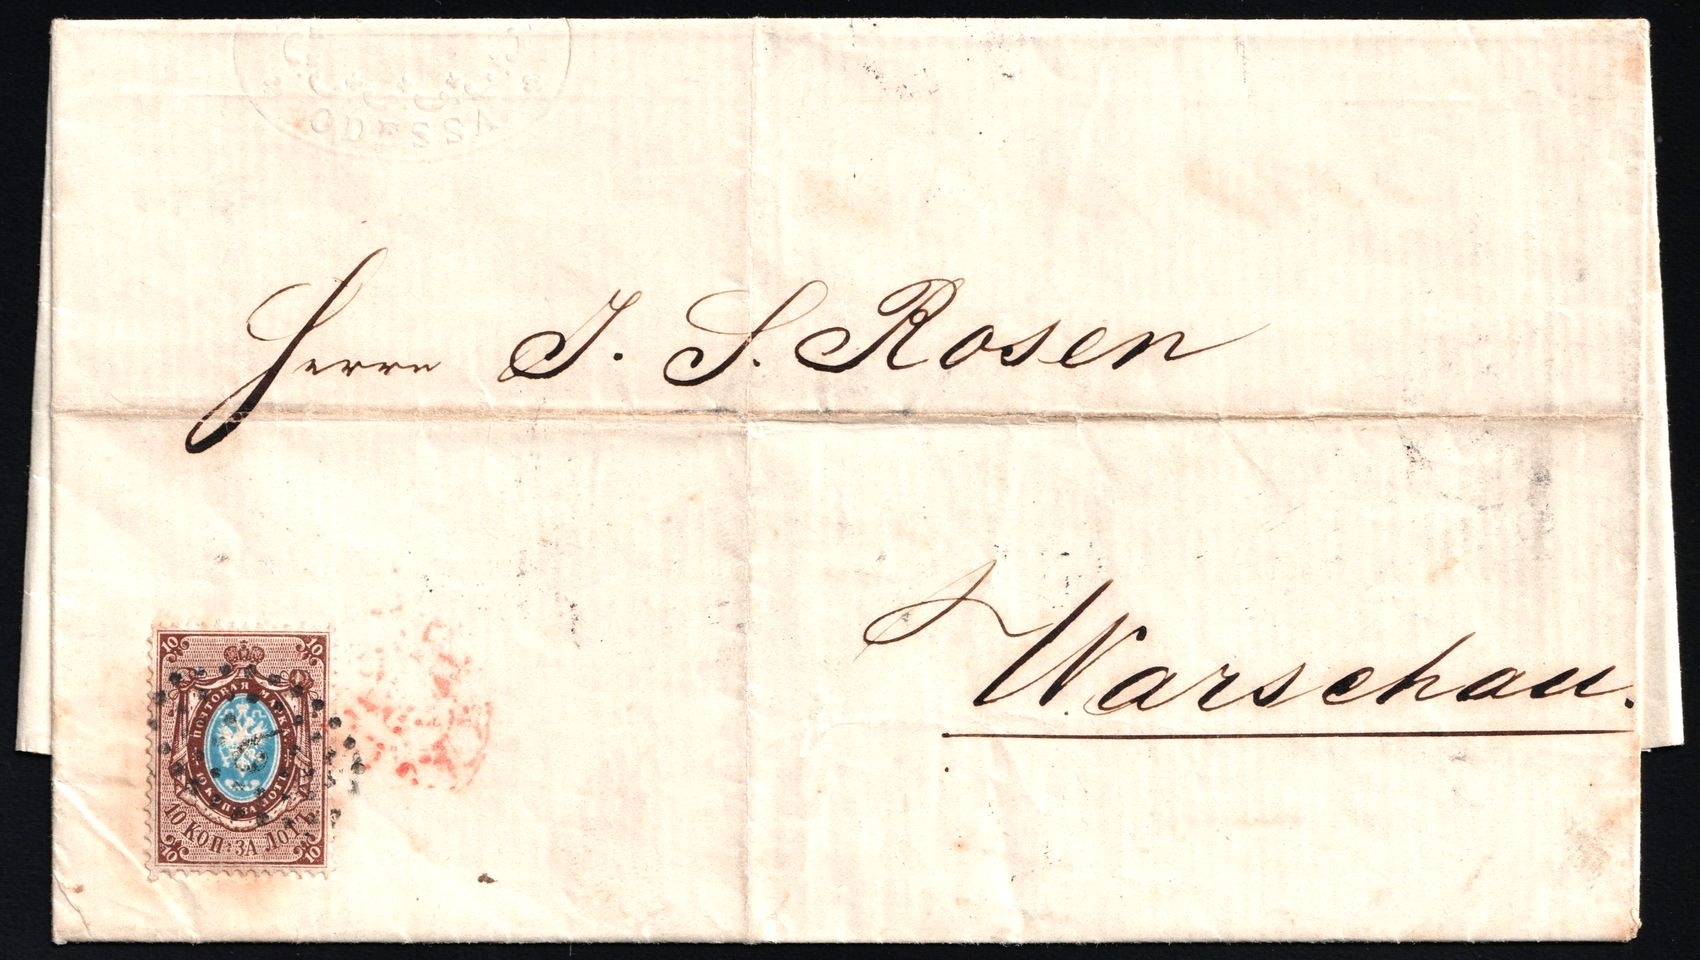 ODESSA
Herrn J. S. Rosen
Warschau.
10 10
ПОЧТОВАЯ МАРКА.
10 КОП: ЗА ЛОТЪ
10 КОП: ЗА ЛОТЪ
10 10